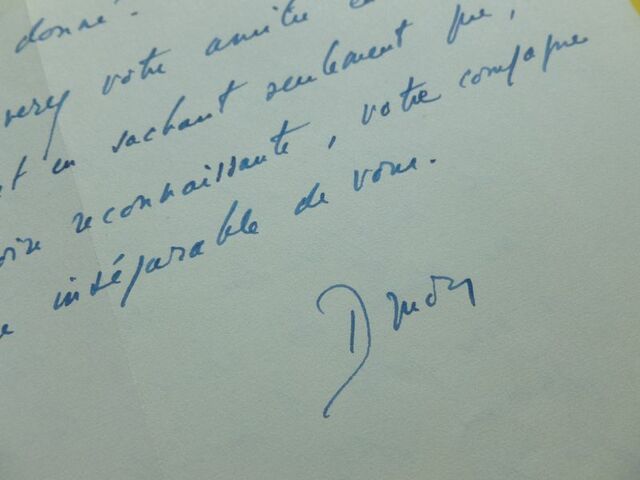 donné.
votre amitié
et en sachant seulement que,
reconnaissante, votre compagne
inséparable de vous.